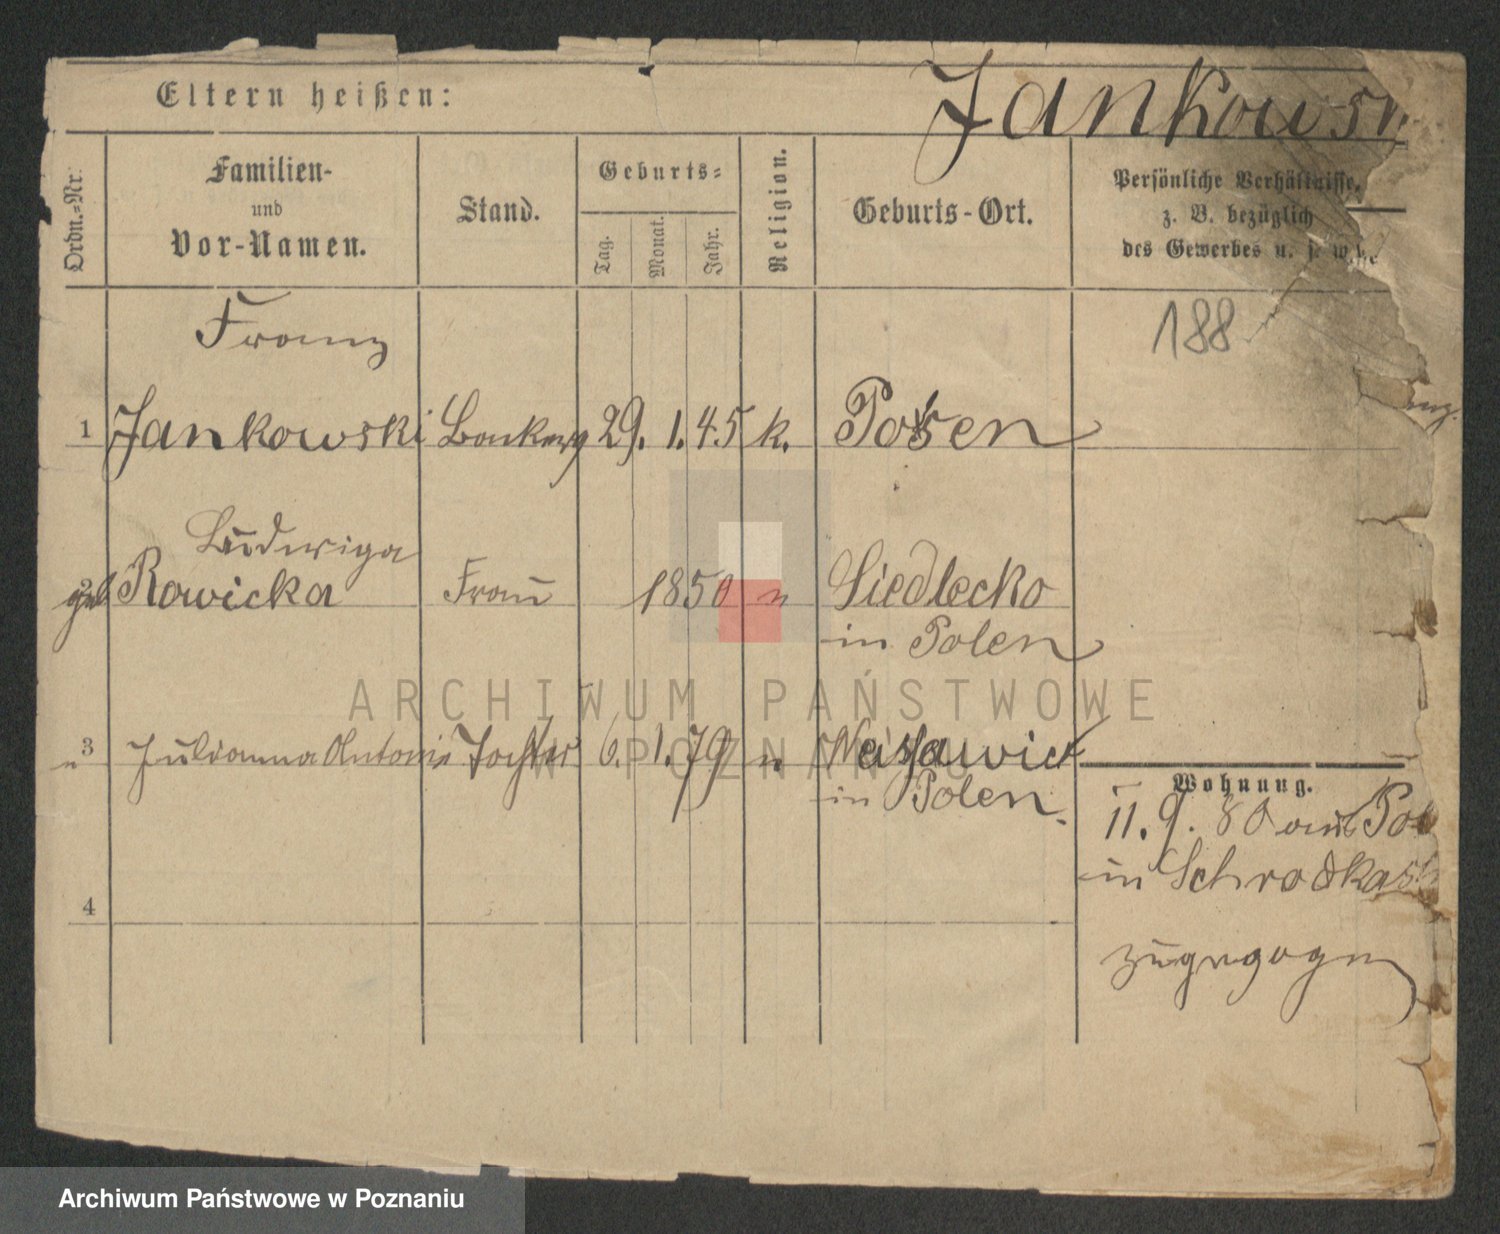 Eltern heißen:
Jankowski
Ordn.-Nr.
Familien-
und
Vor-Namen.
Stand.
Geburts-
Tag.
Monat.
Jahr.
Religion.
Geburts-Ort.
Persönliche Verhältnisse,
z. B. bezüglich
des Gewerbes u. s. w.
188
Franz
1 Jankowski 29. 1. 45 k. Posen
Ludwiga
geb Rowicka Frau 1850 " Siedlecko
in Polen
3 Julianna Antonie Tochter 6. 1. 79 "
in Polen.
Wohnung.
11. 9. 80 aus Pol
in Schrodkastr
zugezogen
4
ARCHIWUM PAŃSTWOWE
W POZNANIU
Archiwum Państwowe w Poznaniu